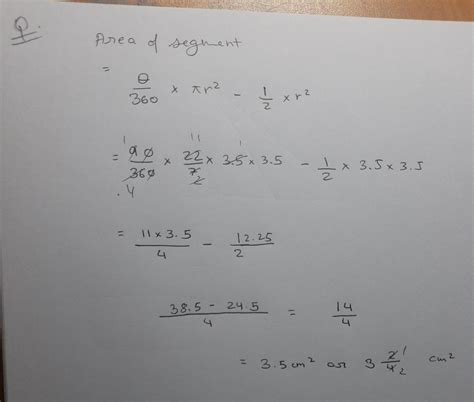 Q.
Area of segment
= θ/360 × πr² - 1/2 × r²
= 90/360 × 22/7 × 3.5 × 3.5 - 1/2 × 3.5 × 3.5
= 11 × 3.5/4 - 12.25/2
38.5 - 24.5/4 = 14/4
= 3.5 cm² or 3 2/4 cm²